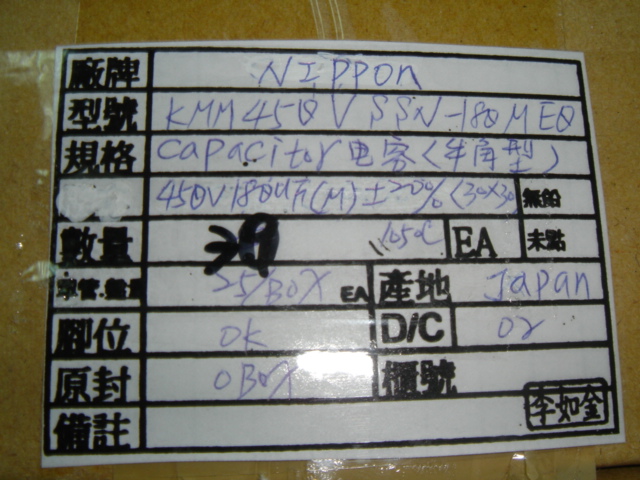 廠牌 NIPPON
型號 KMM450V SSN-180MEO
規格 capacitor 电容(牛角型)
450V180U方(M)±20% (30X30 無鉛
數量 39 105°C EA 未點
25/BOX EA 產地 Japan
腳位 OK D/C 02
原封 0BOX 櫃號
備註 李如金